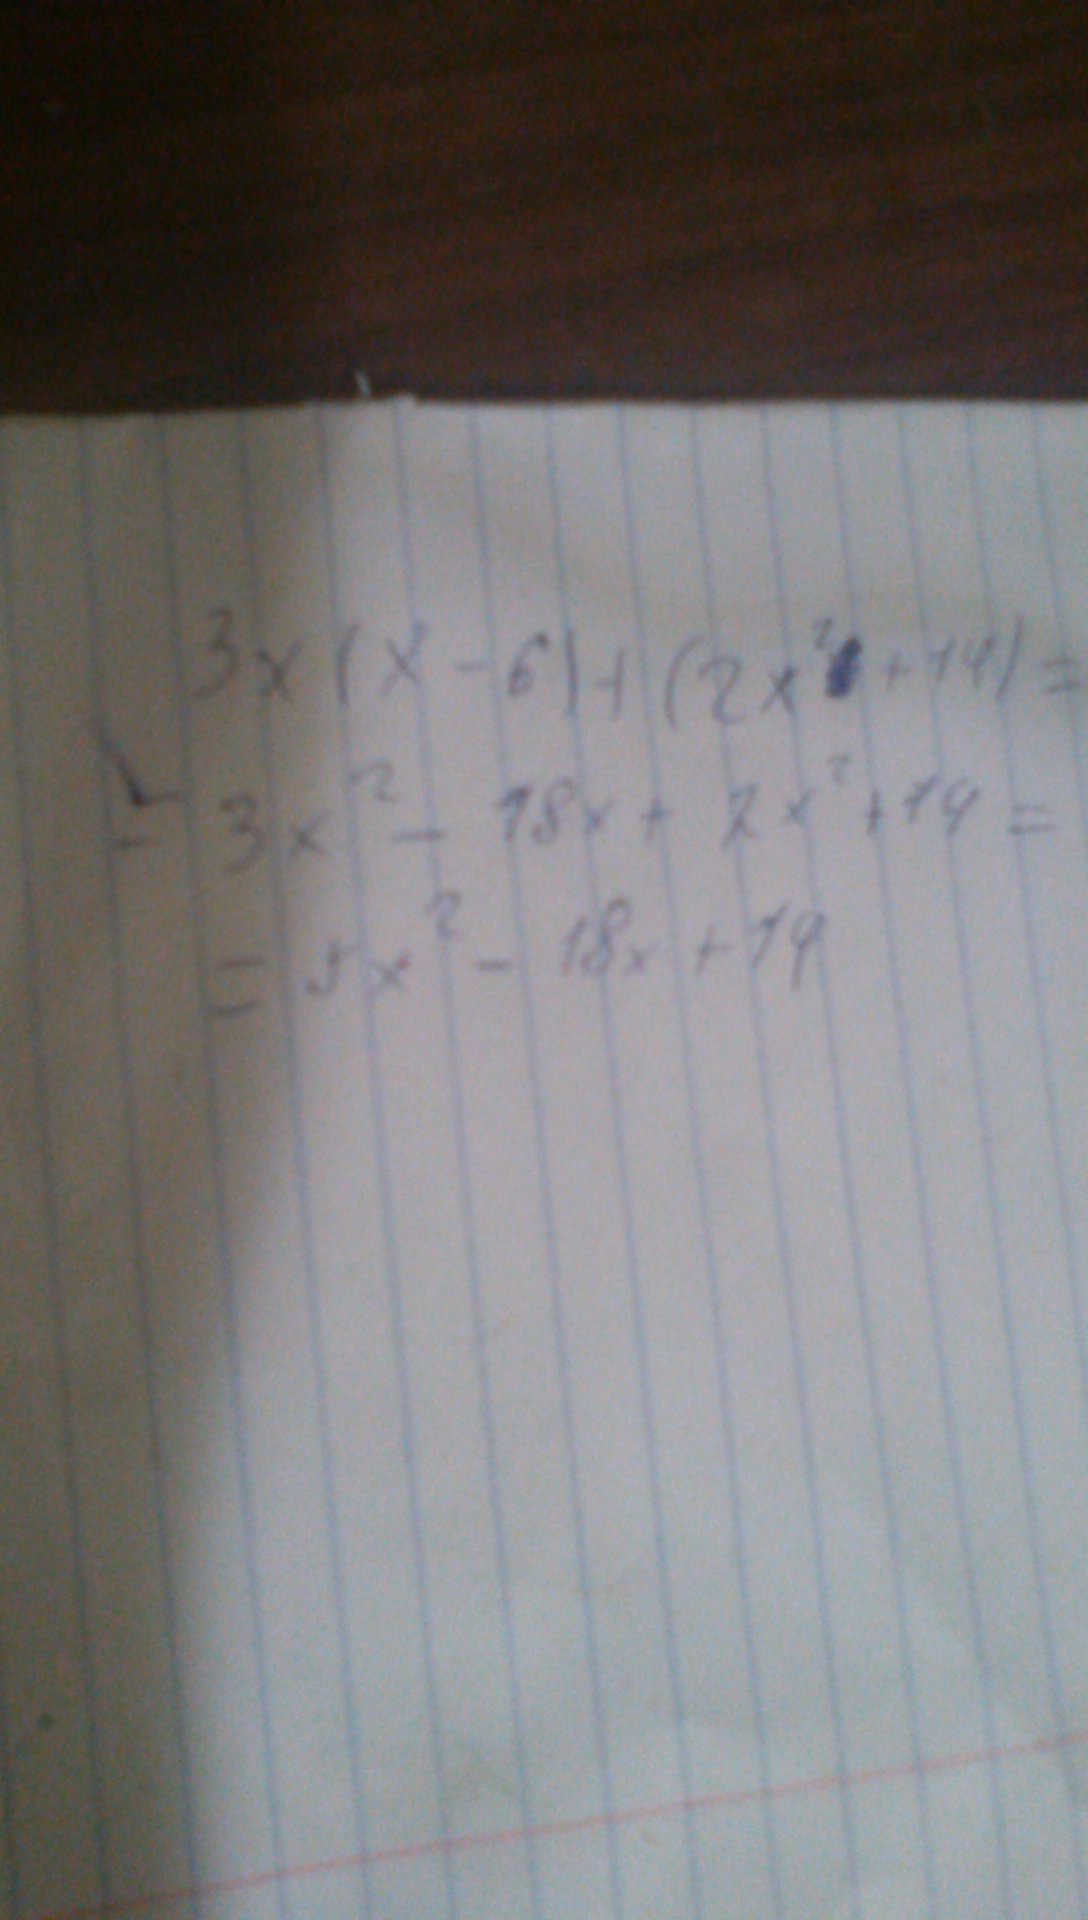 3x(x-6)+(2x²+14)=
= 3x² - 18x + 2x² + 14 =
= 5x² - 18x + 14